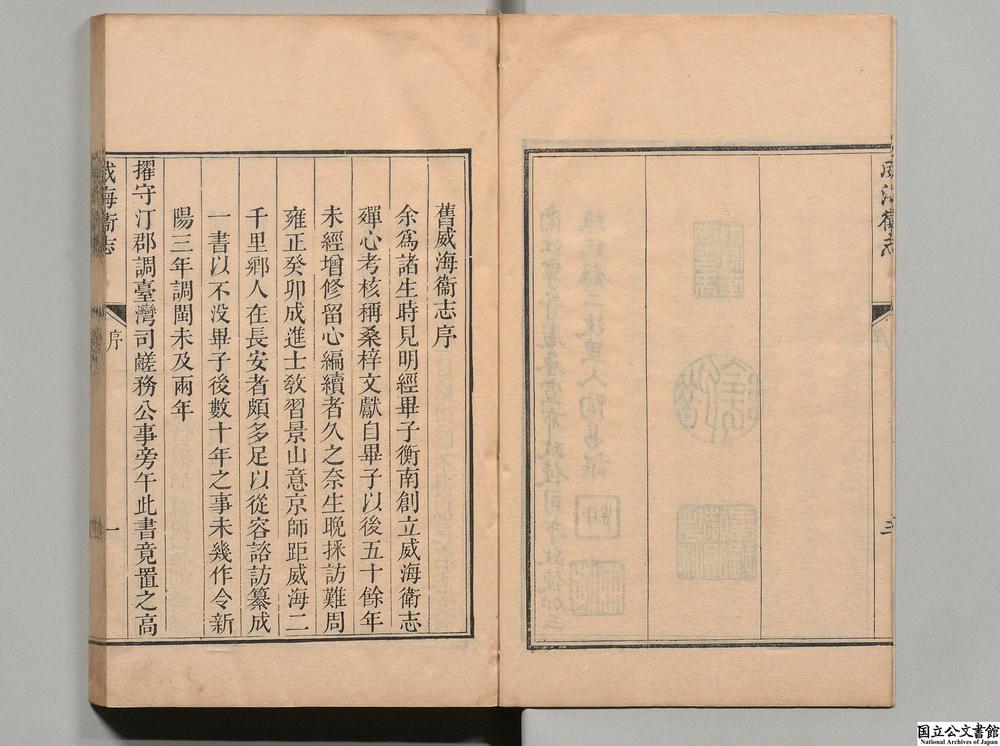 威海衛志
三
舊威海衞志序
余爲諸生時見明經畢子衡南創立威海衛志
殫心考核稱桑梓文獻自畢子以後五十餘年
未經增修留心編續者久之奈生晚採訪難周
雍正癸卯成進士敎習景山意京師距威海二
千里鄉人在長安者頗多足以從容諮訪纂成
一書以不没畢子後數十年之事未幾作令新
陽三年調閩未及兩年
擢守汀郡調臺灣司鹺務公事旁午此書竟置之高
威海衛志
序
一
国立公文書館
National Archives of Japan